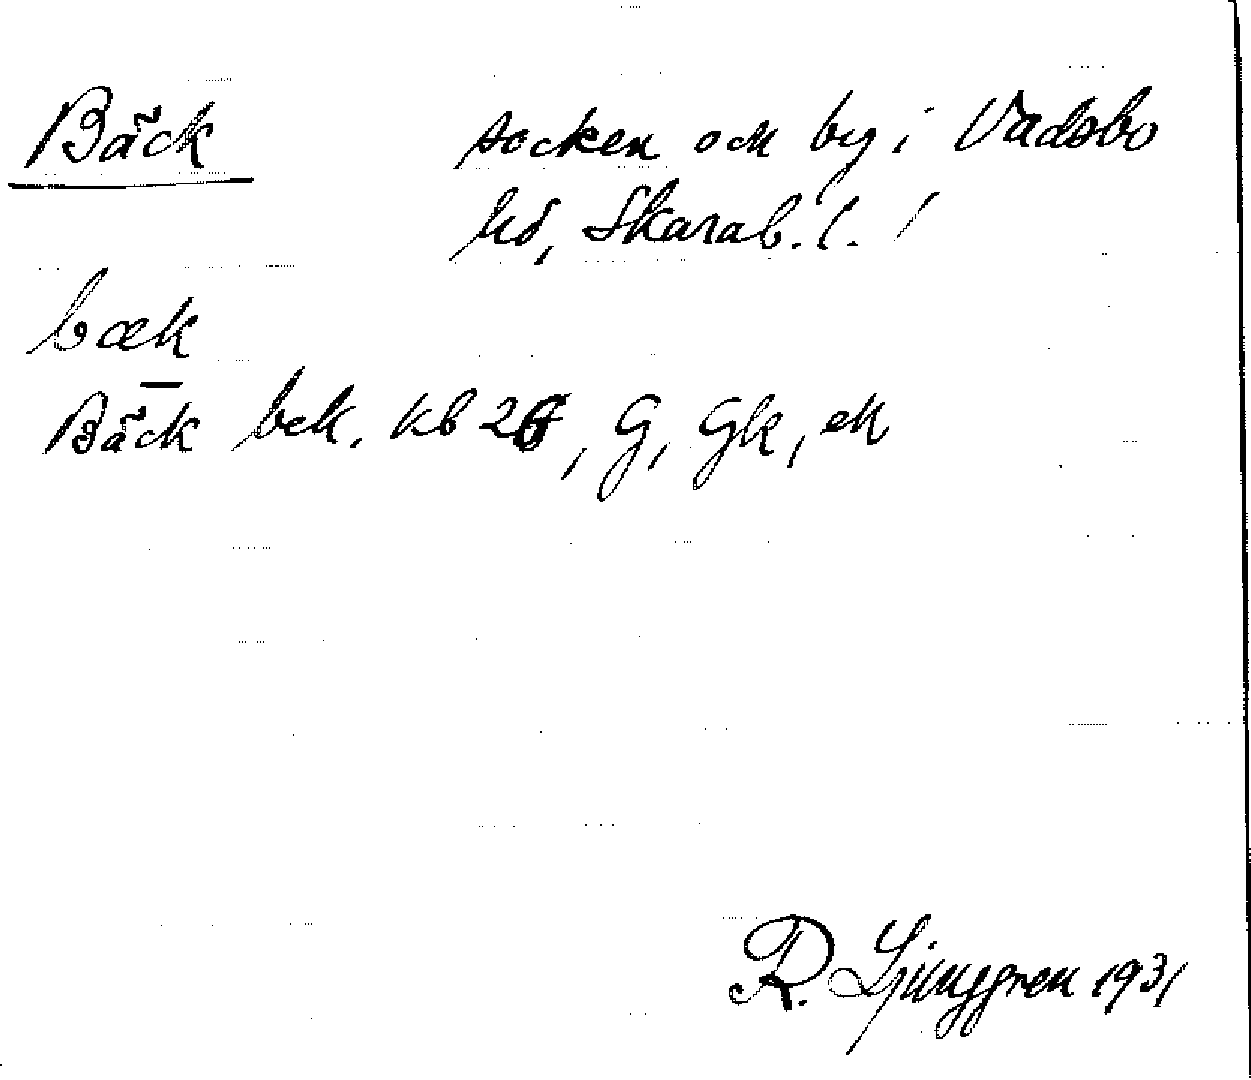 Bäck socken och by i Vadsbo
hd, Skarab. l.
bæk
Bäck bek. kb 26, G, Gk, ek
R. Ljunggren 1931